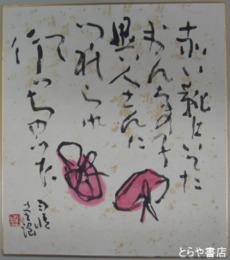 赤い靴はいてた
おんなの子
異人さんに
つれられ
て
行っちゃった
雨情
とらや書店